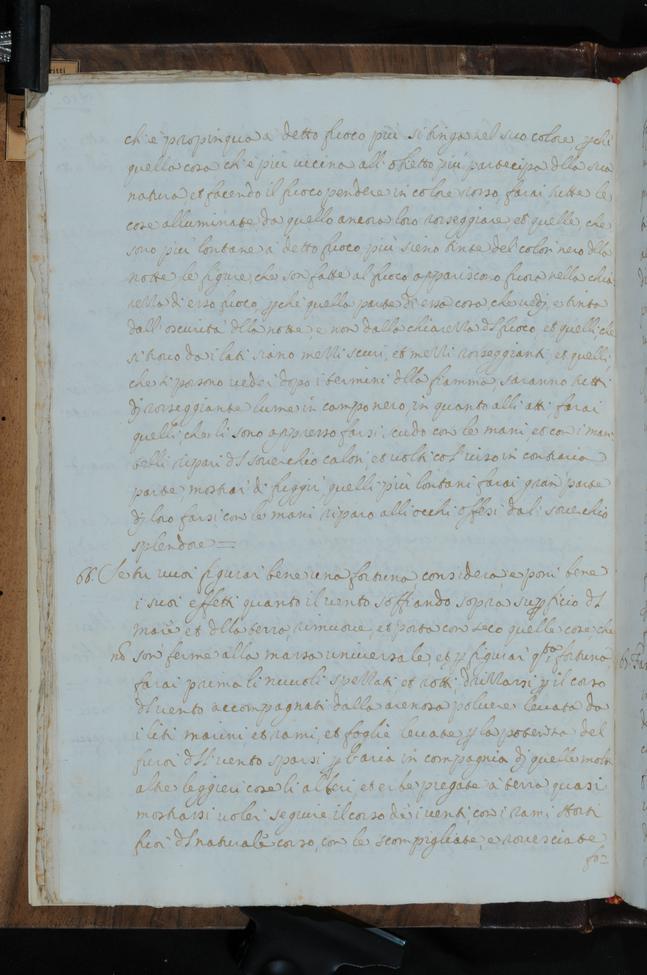 ch'è propinqua à detto fuoco più si tinga nel suo colore, pchè
quella cosa ch'è più vicina all'obietto più partecipa dlla sua
natura, et facendo il fuoco pendere in colore rosso, farai tutte le
cose alluminate da quello ancora loro rosseggiare, et quelle, che
sono più lontane à detto fuoco, più sieno tinte del color nero dlla
notte le figure, che son fatte al fuoco appariscono fuora nella chia
rezza di esso fuoco, pchè quella parte di essa cosa che vedi, è tinta
dall'oscurità dlla notte, e non dalla chiarezza dl fuoco, et quelli, che
si trovo da i lati siano mezzi scuri, et mezzi rosseggianti, et quelli,
che si possono veder dopo i termini dlla fiamma saranno tutti
di rosseggiante lume in campo nero, in quanto alli atti farai
quelli, che li sono appresso farsi scudo con le mani, et con i man
telli ripari dl soverchio calor, et volti col viso in contraria
parte mostrar di fuggir, quelli più lontani farai gran parte
di loro farsi con le mani riparo alli occhi offesi dal soverchio
splendore =
66. Se tu vuoi figurar bene una fortuna considera, e poni bene
i suoi effetti quanto il vento soffiando sopra la supficie dl
mare et dlla terra, rimuove, et porta con seco quelle cose, che
nō son ferme alla massa universale, et p figurar qsta fortuna
farai prima li nuvoli spezzati, et rotti, drizzarsi p il corso
dl vento accompagnati dalla arenosa polvere levata da
i liti marini, et rami, et foglie levate p la potenza del
furor dl vento sparsi p l'aria in compagnia di quelle molte
altre leggieri cose, li alberi, et erbe piegate à terra quasi
mostrarsi voler seguire il corso de i venti con i rami storti
fuor dl naturale corso, con le scompigliate, e rovesciate